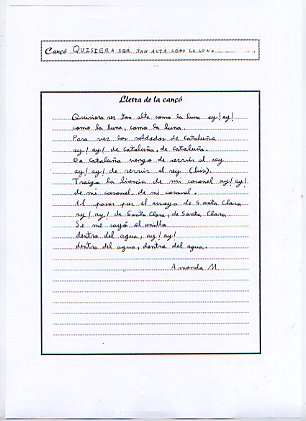 Cançó QUISIERA SER TAN ALTA COMO LA LUNA
Lletra de la cançó
Quisiera ser tan alta como la luna ay! ay!
como la luna, como la luna.
Para ver los soldados de Cataluña
ay! ay! de Cataluña, de Cataluña.
De Cataluña vengo de servir al rey
ay! ay! de servir al rey (bis).
Traigo la licencia de mi coronel ay! ay!
de mi coronel, de mi coronel.
Al pasar por el arroyo de Santa Clara
ay! ay! de Santa Clara, de Santa Clara
Se me cayó el anillo
dentro del agua, ay! ay!
dentro del agua, dentro del agua.
Amanda M.